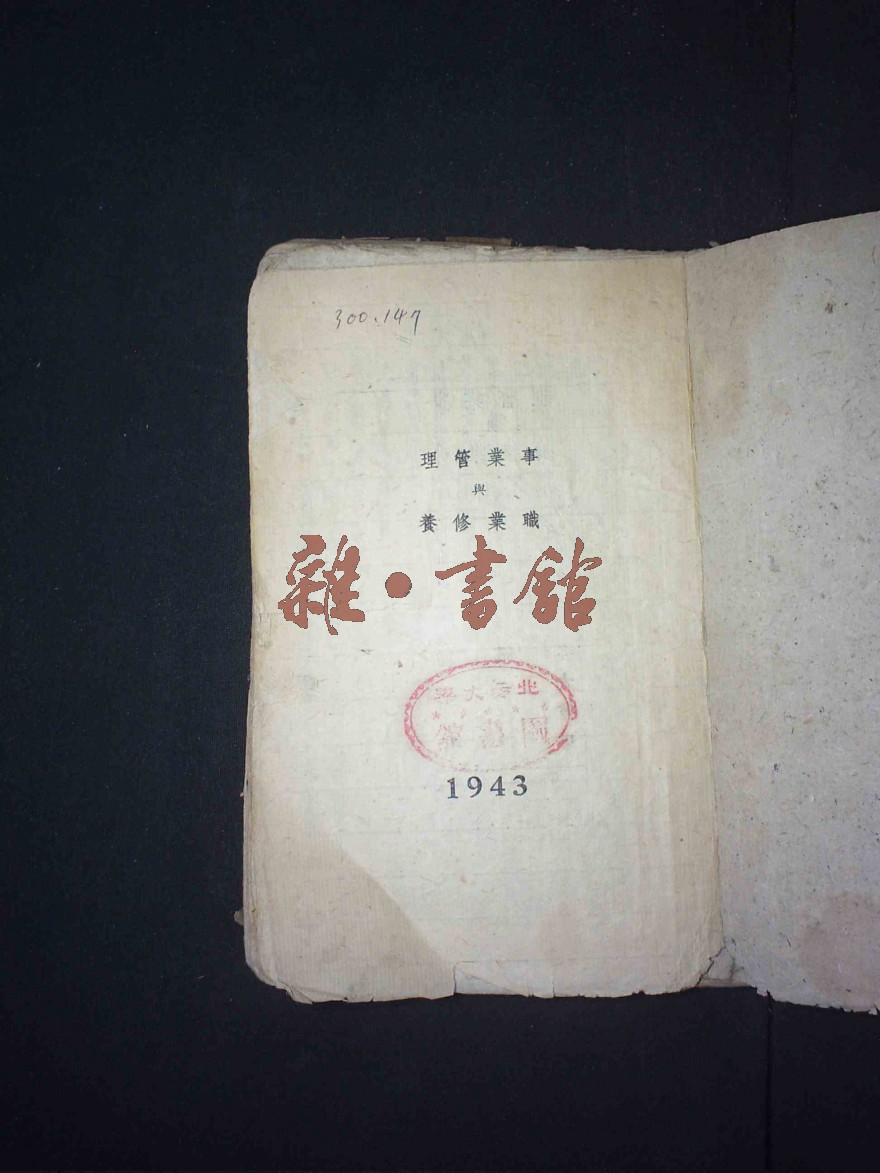 300.147
事業管理
與
職業修養
雜·書館
圖書館
1943